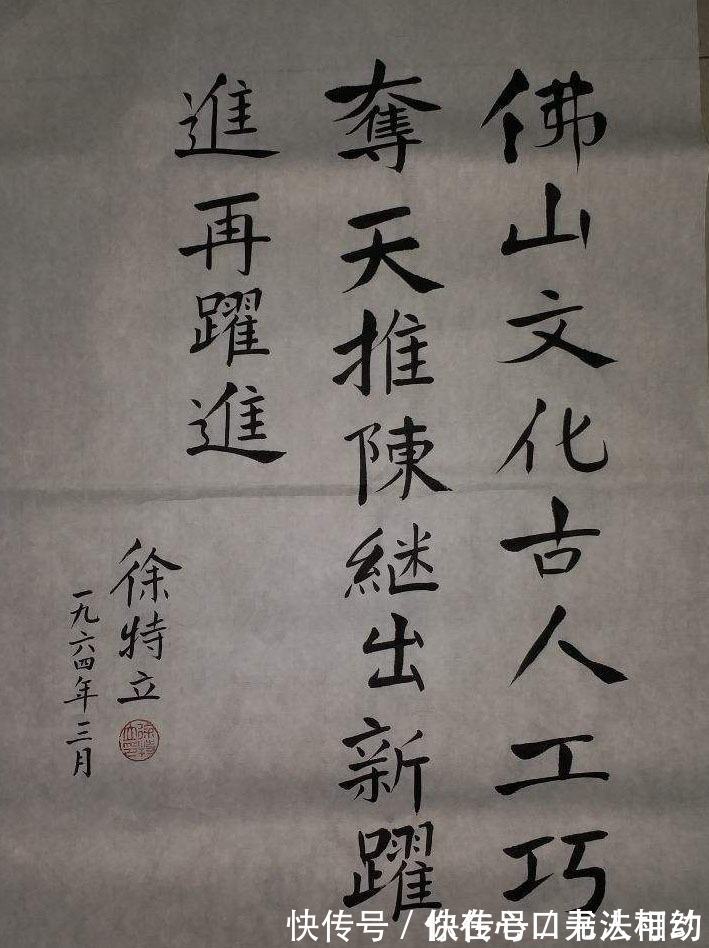 佛山文化古人工巧
奪天推陳継出新躍
進再躍進
徐特立
一九六四年三月
快传号／